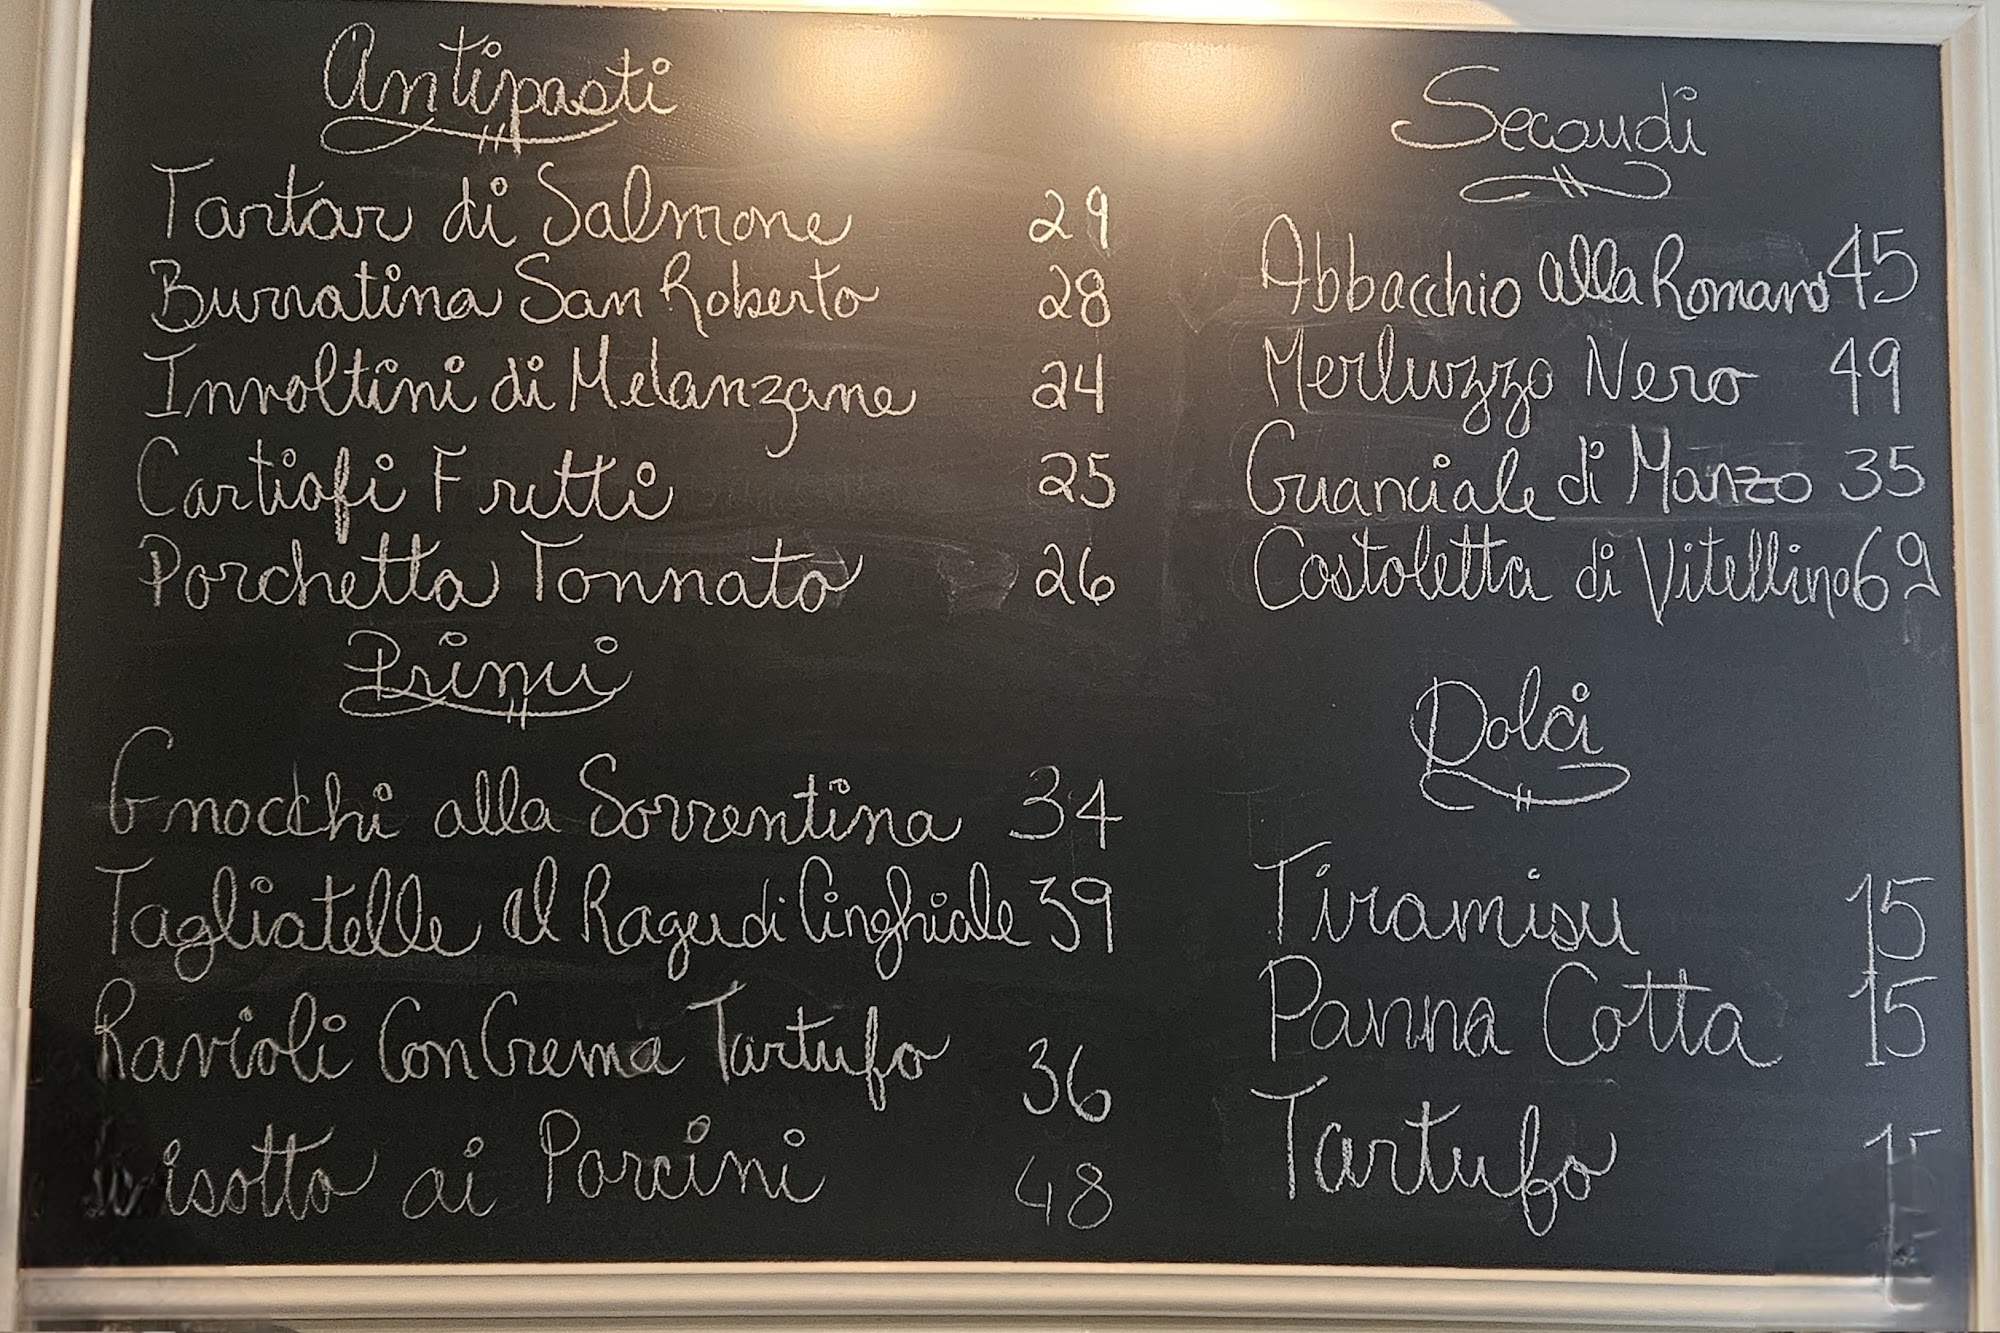 Antipasti
Tartar di Salmone 29
Burratina San Roberto 28
Involtini di Melanzane 24
Cartiofi Fritti 25
Porchetta Tonnato 26
Primi
Gnocchi alla Sorrentina 34
Tagliatelle al Ragu di Cinghiale 39
Ravioli Con Crema Tartufo 36
isotto ai Porcini 48
Secondi
Abbacchio alla Romano 45
Merluzzo Nero 49
Guanciale di Manzo 35
Costoletta di Vitellino 69
Dolci
Tiramisu 15
Panna Cotta 15
Tartufo 15